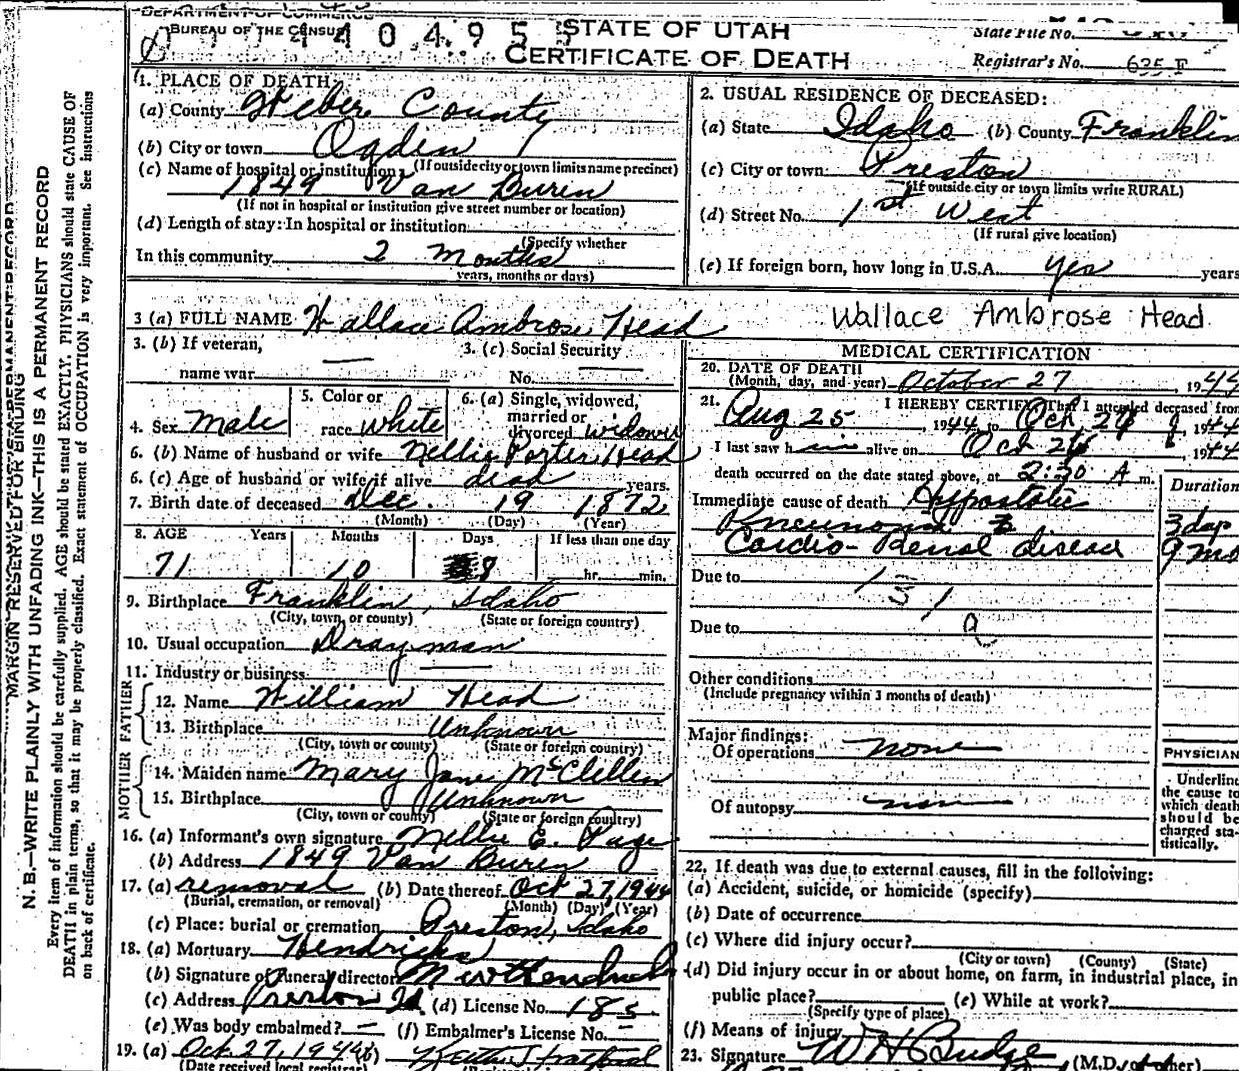 DEPARTMENT OF COMMERCE
BUREAU OF THE CENSUS
40495
STATE OF UTAH
CERTIFICATE OF DEATH
State File No.
Registrar's No. 635 F
MARGIN RESERVED FOR BINDING
N. B.—WRITE PLAINLY WITH UNFADING INK—THIS IS A PERMANENT RECORD
Every item of information should be carefully supplied. AGE should be stated EXACTLY. PHYSICIANS should state CAUSE OF
DEATH in plain terms, so that it may be properly classified. Exact statement of OCCUPATION is very important. See instructions
on back of certificate.
1. PLACE OF DEATH:
(a) County Weber County
(b) City or town Ogden
(If outside city or town limits name precinct)
(c) Name of hospital or institution:
1849 Van Buren
(If not in hospital or institution give street number or location)
(d) Length of stay: In hospital or institution
(Specify whether
In this community 2 months
years, months or days)
2. USUAL RESIDENCE OF DECEASED:
(a) State Idaho (b) County Franklin
(c) City or town Preston
(If outside city or town limits write RURAL)
(d) Street No. 1st West
(If rural give location)
(e) If foreign born, how long in U.S.A. yes years
3 (a) FULL NAME Wallace Ambrose Head
Wallace Ambrose Head
3. (b) If veteran,
name war
3. (c) Social Security
No.
4. Sex Male
5. Color or
race white
6. (a) Single, widowed,
married or
divorced widower
6. (b) Name of husband or wife Nellie Porter Head
6. (c) Age of husband or wife if alive dead years.
7. Birth date of deceased Dec. 19 1872
(Month) (Day) (Year)
8. AGE Years Months Days If less than one day
71 10 8 hr. min.
9. Birthplace Franklin, Idaho
(City, town, or county) (State or foreign country)
10. Usual occupation Drayman
11. Industry or business
FATHER
12. Name William Head
13. Birthplace Unknown
(City, town or county) (State or foreign country)
MOTHER
14. Maiden name Mary Jane McClellen
15. Birthplace Unknown
(City, town or county) (State or foreign country)
16. (a) Informant's own signature Nellie E. Page
(b) Address 1849 Van Buren
17. (a) removal (b) Date thereof Oct 27, 1944
(Burial, cremation, or removal) (Month) (Day) (Year)
(c) Place: burial or cremation Preston, Idaho
18. (a) Mortuary Hendricks
(b) Signature of Funeral director M W Hendricks
(c) Address Preston Id (d) License No. 185
(e) Was body embalmed? — (f) Embalmer's License No. —
19. (a) Oct. 27, 1944 (b)
(Date received local registrar)
MEDICAL CERTIFICATION
20. DATE OF DEATH
(Month, day, and year) October 27, 1944
21. I HEREBY CERTIFY That I attended deceased from
Aug 25, 1944 to Oct. 26, 1944
I last saw him alive on Oct 26, 1944
death occurred on the date stated above, at 2:30 A m.
Duration
Immediate cause of death Hypostatic
Pneumonia 3 days
Cardio-Renal disease 9 mo
Due to
131
Due to
a
Other conditions
(Include pregnancy within 3 months of death)
Major findings:
Of operations none
Of autopsy none
PHYSICIAN
Underline
the cause to
which death
should be
charged sta-
tistically.
22. If death was due to external causes, fill in the following:
(a) Accident, suicide, or homicide (specify)
(b) Date of occurrence
(c) Where did injury occur?
(City or town) (County) (State)
(d) Did injury occur in or about home, on farm, in industrial place, in
public place? (e) While at work?
(Specify type of place)
(f) Means of injury
23. Signature W H Budge (M.D. or other)